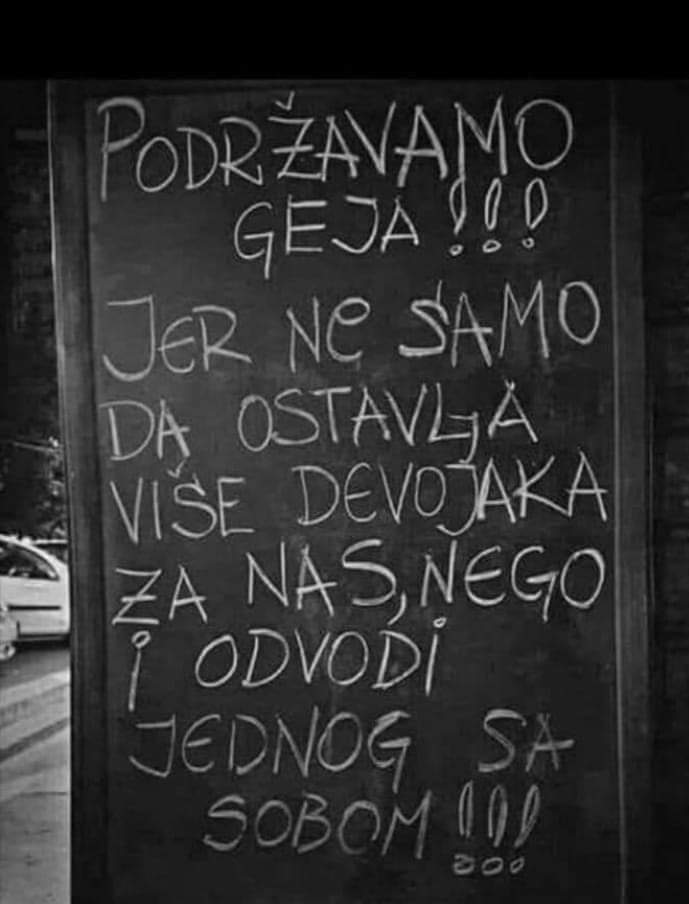 PODRŽAVAMO
GEJA!!!
JER Ne SAMO
DA OSTAVLjA
VIŠE DEVOJAKA
ZA NAS, NEGO
i ODVODi
JEDNOG SA
SOBOM!!!